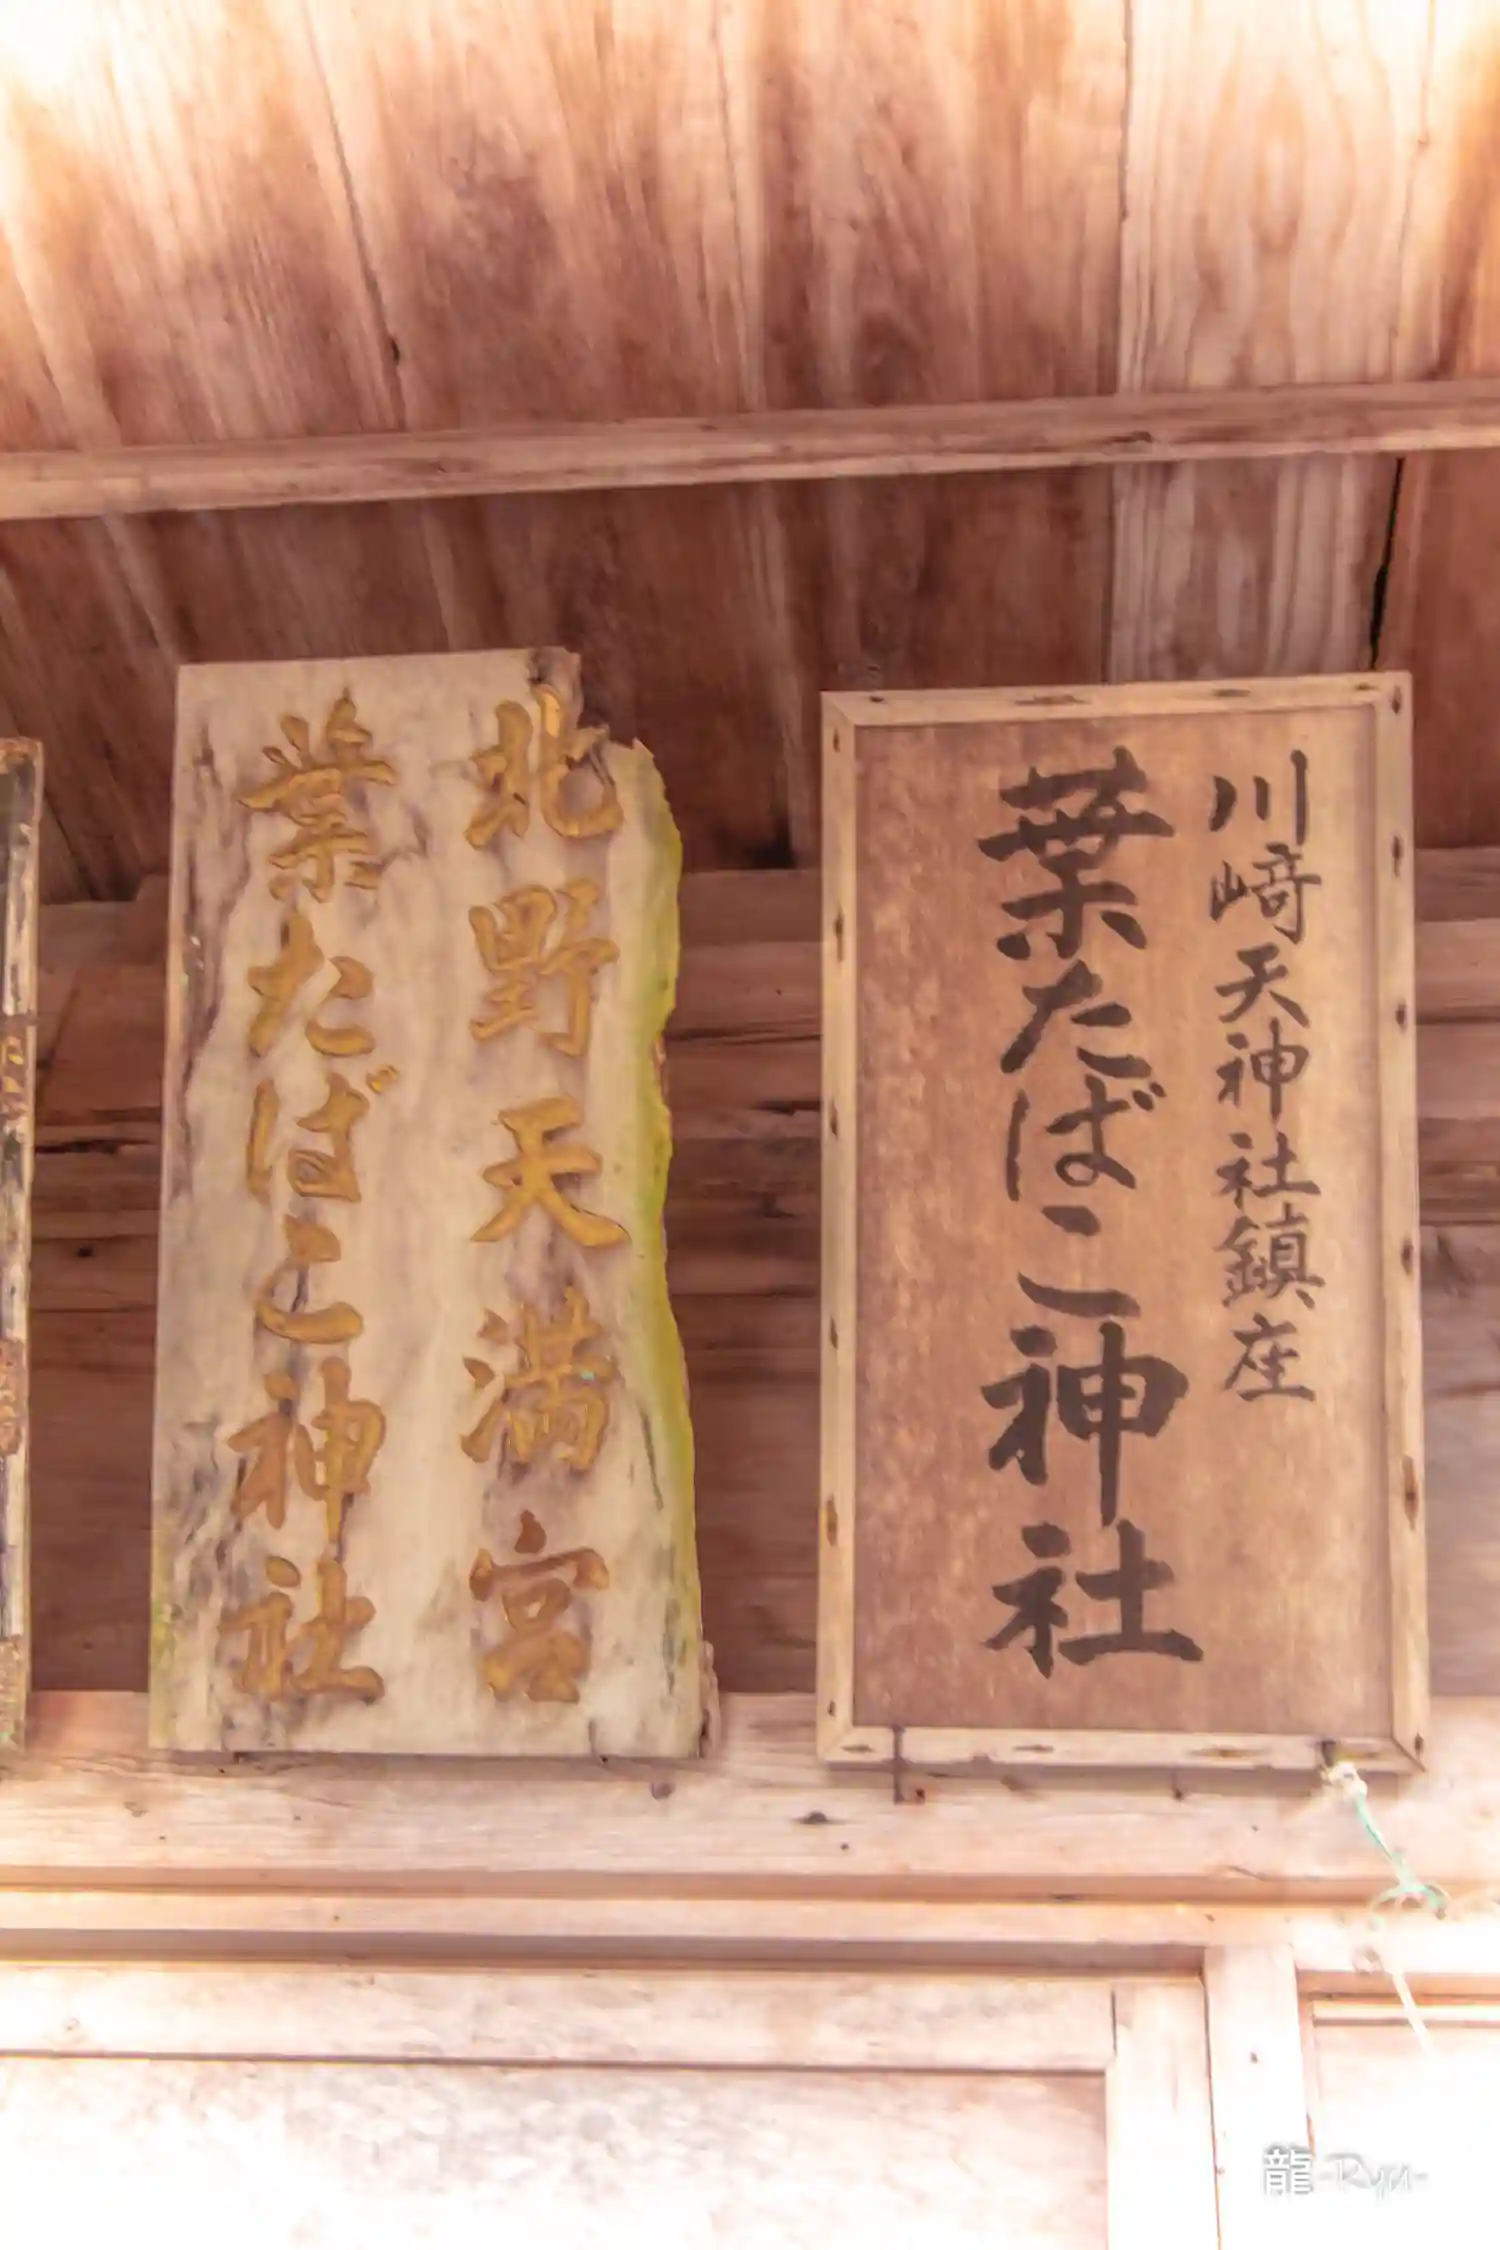 川﨑天神社鎮座
葉たばこ神社
北野天満宮
葉たばこ神社
龍-Ryu-